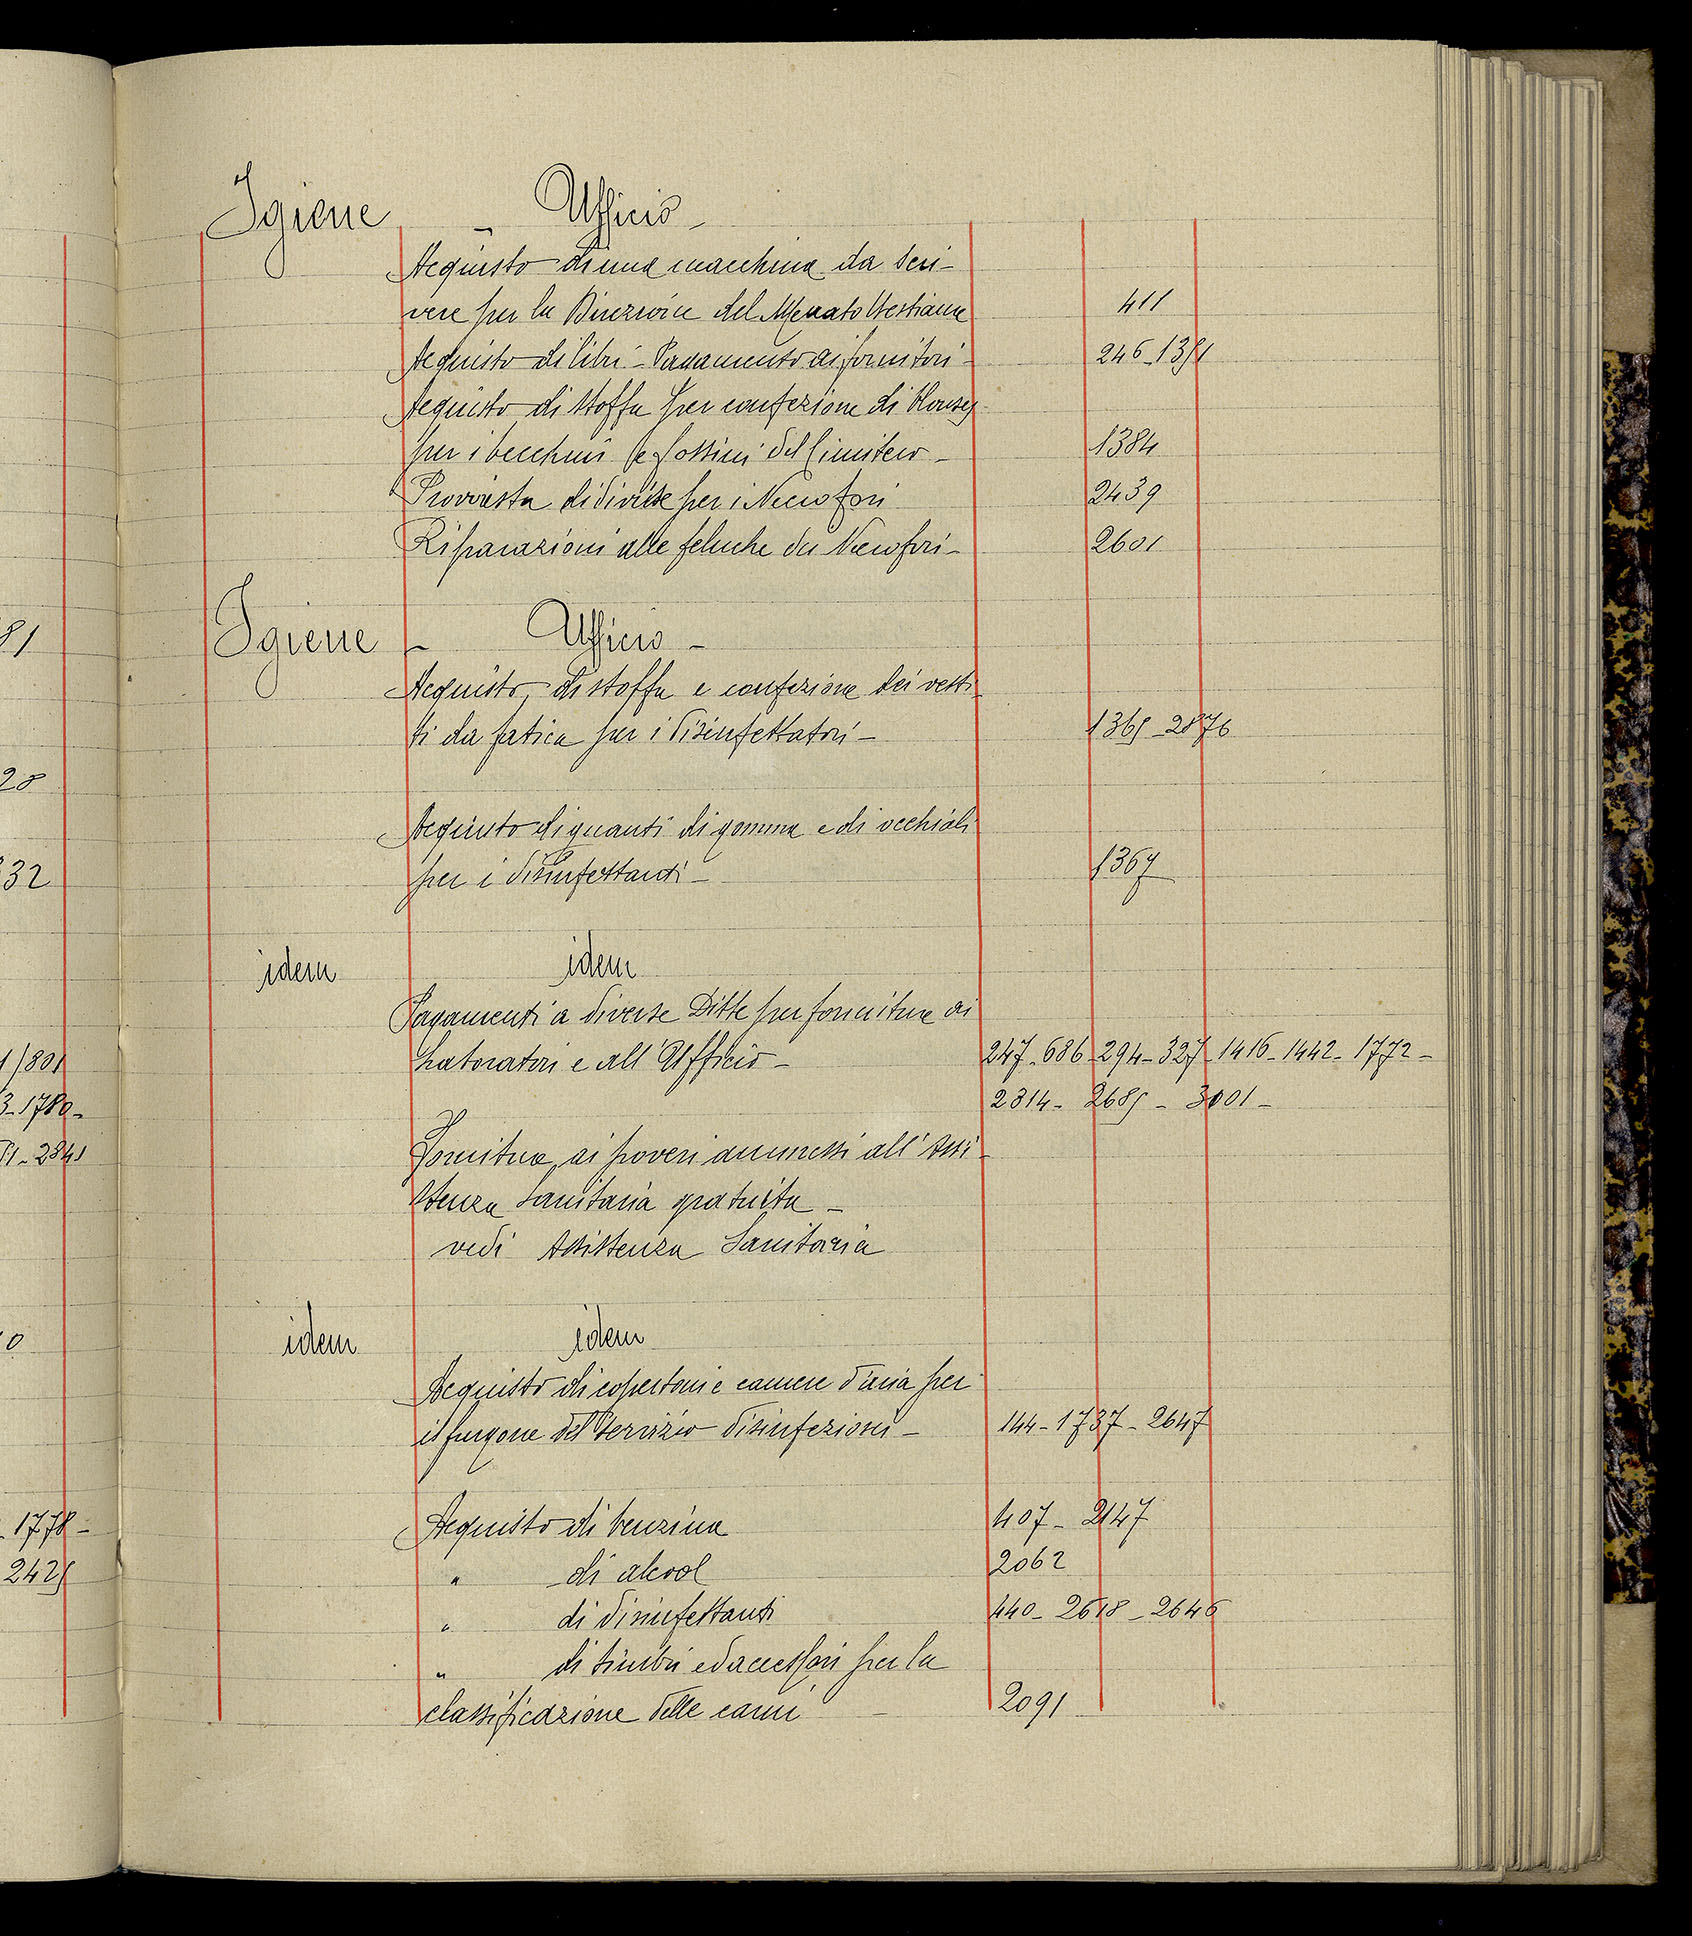 Igiene - Ufficio -
Acquisto di una macchina da scri-
vere per la Direzione del Mercato Bestiame 411
Acquisto di libri - Pagamento ai fornitori - 246-1351
Acquisto di stoffa per confezione di blouses
per i becchini e fossini del Cimitero - 1384
Provvista di divise per i Necrofori 2439
Riparazioni alle feluche dei Necrofori - 2601
Igiene - Ufficio -
Acquisto di stoffa e confezione dei vesti-
ti da fatica per i disinfettatori - 1365-2876
Acquisto di guanti di gomma e di occhiali
per i disinfettanti - 1367
idem idem
Pagamenti a diverse Ditte per forniture ai
Laboratori e all'Ufficio - 247-686-294-327-1416-1442-1772-
2314- 2685 - 3001 -
Fornitura ai poveri ammessi all'Assi-
stenza Sanitaria gratuita -
vedi Assistenza Sanitaria
idem idem
Acquisto di copertoni e camere d'aria per
il furgone del servizio disinfezioni - 144-1737-2647
Acquisto di benzina 407-2147
" di alcool 2062
" di disinfettanti 440-2618-2646
" di timbri ed accessori per la
classificazione delle carni - 2091
81
28
32
1/801
3-1780-
51-2841
0
-1778-
2425